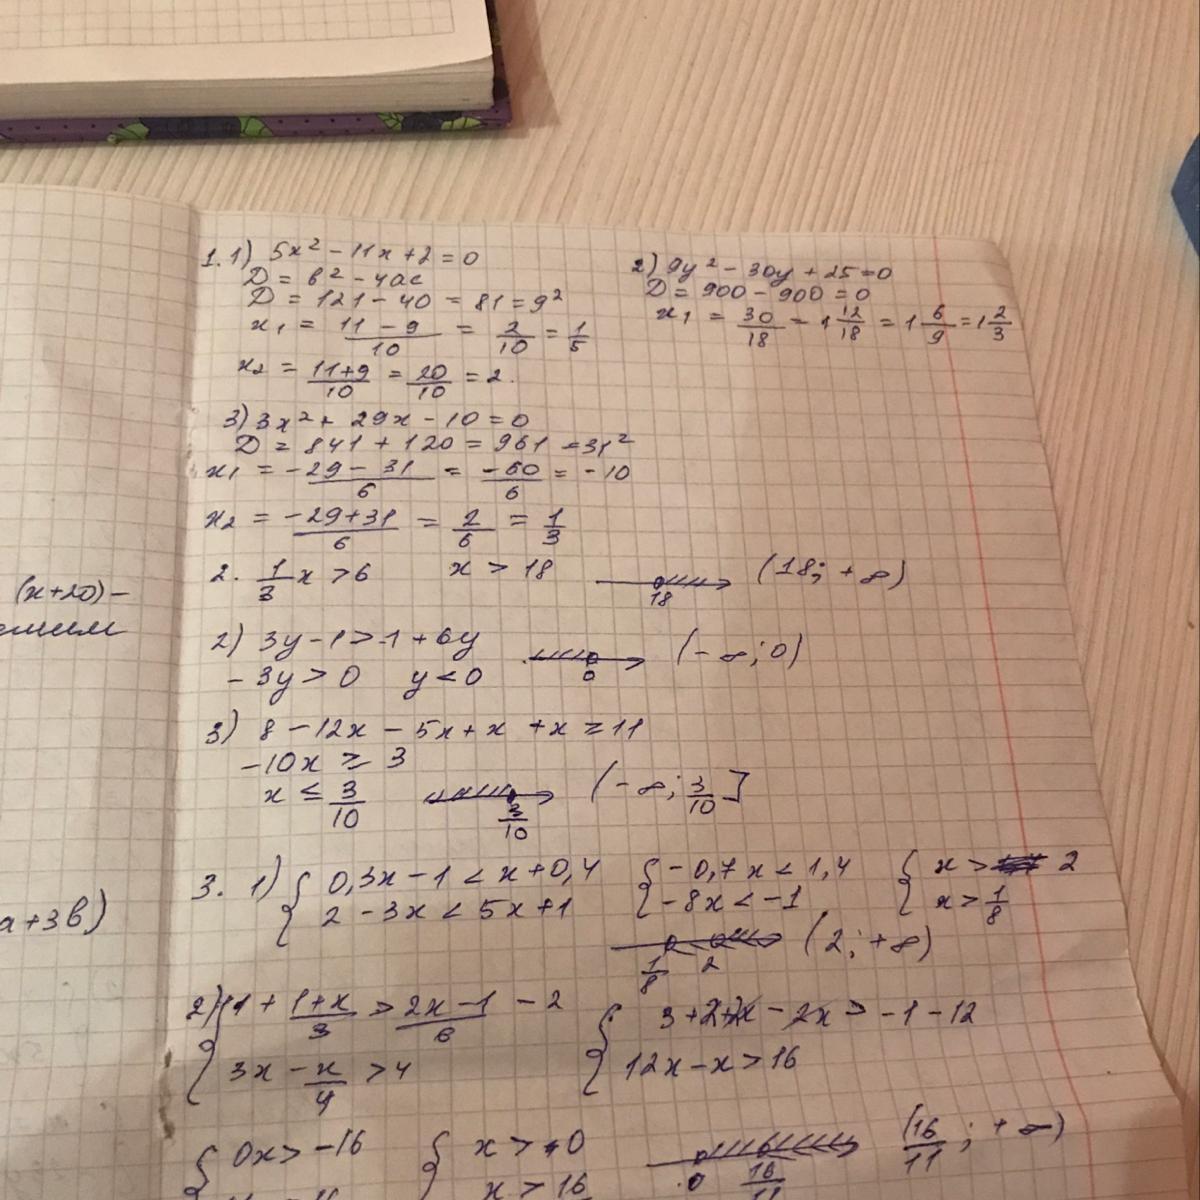 1. 1) 5x² - 11x + 2 = 0
D = b² - 4ac
D = 121 - 40 = 81 = 9²
x₁ = (11 - 9)/10 = 2/10 = 1/5
x₂ = (11+9)/10 = 20/10 = 2.
2) 9y² - 30y + 25 = 0
D = 900 - 900 = 0
x₁ = 30/18 = 1 12/18 = 1 6/9 = 1 2/3
3) 3x² + 29x - 10 = 0
D = 841 + 120 = 961 = 31²
x₁ = (-29 - 31)/6 = -60/6 = -10
x₂ = (-29+31)/6 = 2/6 = 1/3
2. 1/3 x > 6 x > 18 18 (18; +∞)
2) 3y - 1 > -1 + 6y
-3y > 0 y < 0 0 (-∞; 0)
3) 8 - 12x - 5x + x + x ≥ 11
-10x ≥ 3
x ≤ 3/10 3/10 (-∞; 3/10]
(x+20) -
a+3b)
3. 1) { 0,3x - 1 < x + 0,4 { -0,7x < 1,4 { x > 2
2 - 3x < 5x + 1 -8x < -1 x > 1/8
1/8 2 (2; +∞)
2) { 1 + (1+x)/3 > (2x-1)/6 - 2 { 3+2+2x - 2x > -1 - 12
3x - x/4 > 4 12x - x > 16
{ 0x > -16 { x > 0 0 16/11 (16/11; +∞)
x > 16